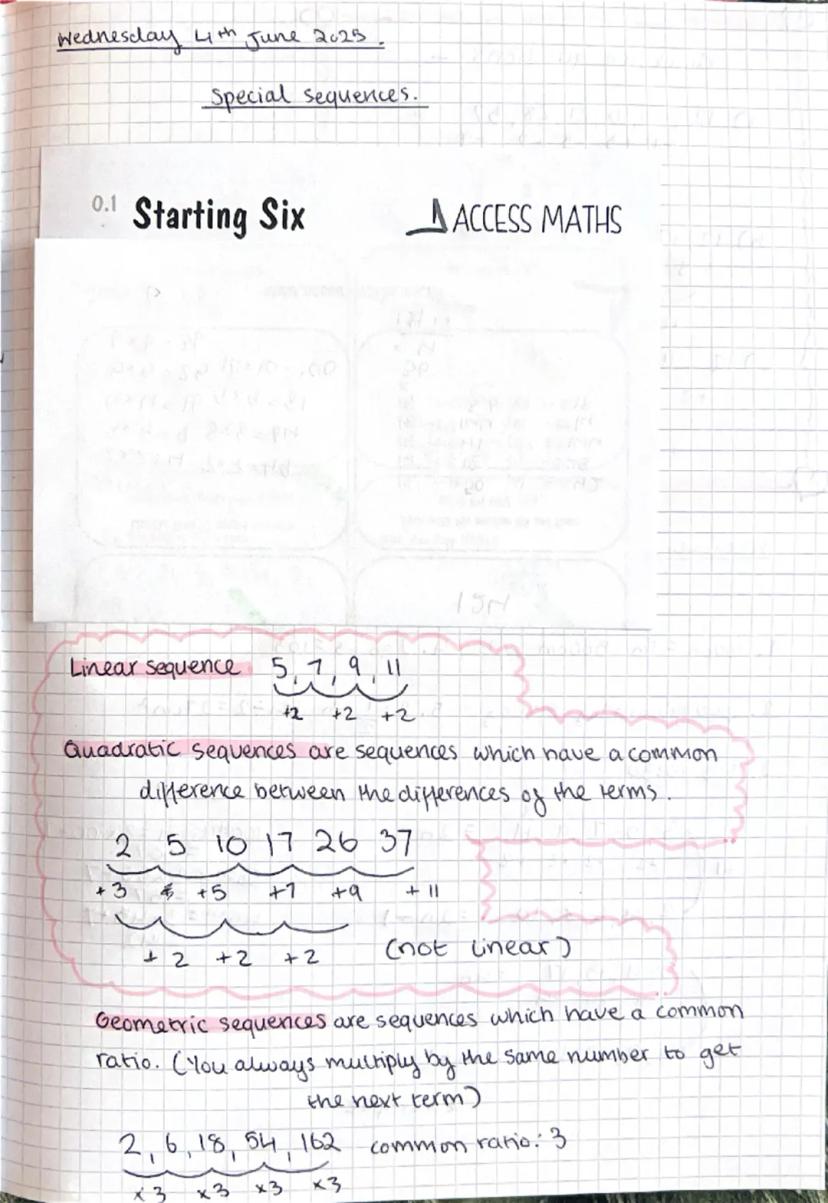 Wednesday 4th June 2025.
Special sequences.
0.1 Starting Six ACCESS MATHS
Linear sequence 5, 7, 9, 11
+2 +2 +2
Quadratic sequences are sequences which have a common
difference between the differences of the terms.
2 5 10 17 26 37
+3 +5 +7 +9 +11
+2 +2 +2 (not linear)
Geometric sequences are sequences which have a common
ratio. (You always multiply by the same number to get
the next term)
2, 6, 18, 54, 162 common ratio: 3
x3 x3 x3 x3